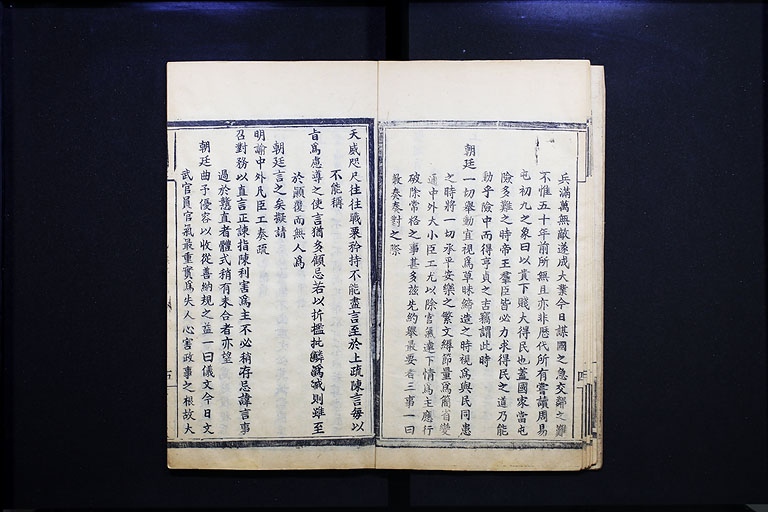 兵滿萬無敵遂成大業今日謀國之急交鄰之難
不惟五十年前所無且亦非歷代所有嘗讀周易
屯初九之象曰以貴下賤大得民也蓋國家當屯
險多難之時帝王羣臣皆必力求得民之道乃能
動乎險中而得亨貞之吉竊謂此時
朝廷一切舉動宜視為草昧締造之時視為與民同患
之時將一切承平安樂之繁文縟節量為簡省變
通中外大小臣工尤以除官氣達下情為主應行
破除常格之事甚多茲先約舉最要者三事一曰
敷奏奏對之際
天威咫尺往往戰栗矜持不能盡言至於上疏陳言每以
不能稱
旨為慮導之使言猶多顧忌若以折檻批鱗為戒則雖至
於顛覆而無人為
朝廷言之矣擬請
明諭中外凡臣工奏疏
召對務以直言正諫指陳利害為主不必稍存忌諱言事
過於戇直者體式稍有未合者亦望
朝廷曲予優容以收從善納規之益一曰儀文今日文
武官員官氣最重實為失人心害政事之根故大
四